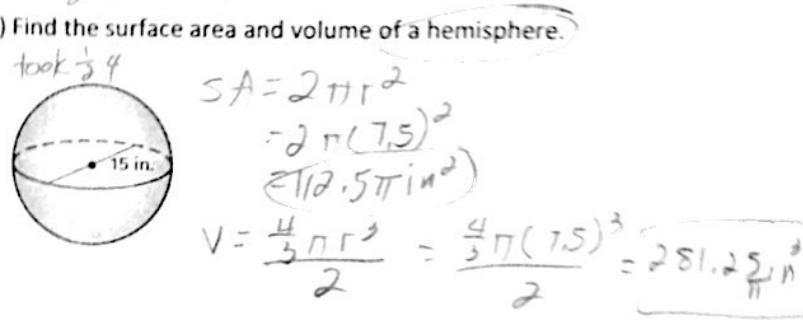 ) Find the surface area and volume of a hemisphere.
took 1/2 4
15 in.
SA = 2πr²
= 2π(7.5)²
= 112.5π in²
V = (4/3 πr³)/2 = (4/3 π(7.5)³)/2 = 281.25 in³
π